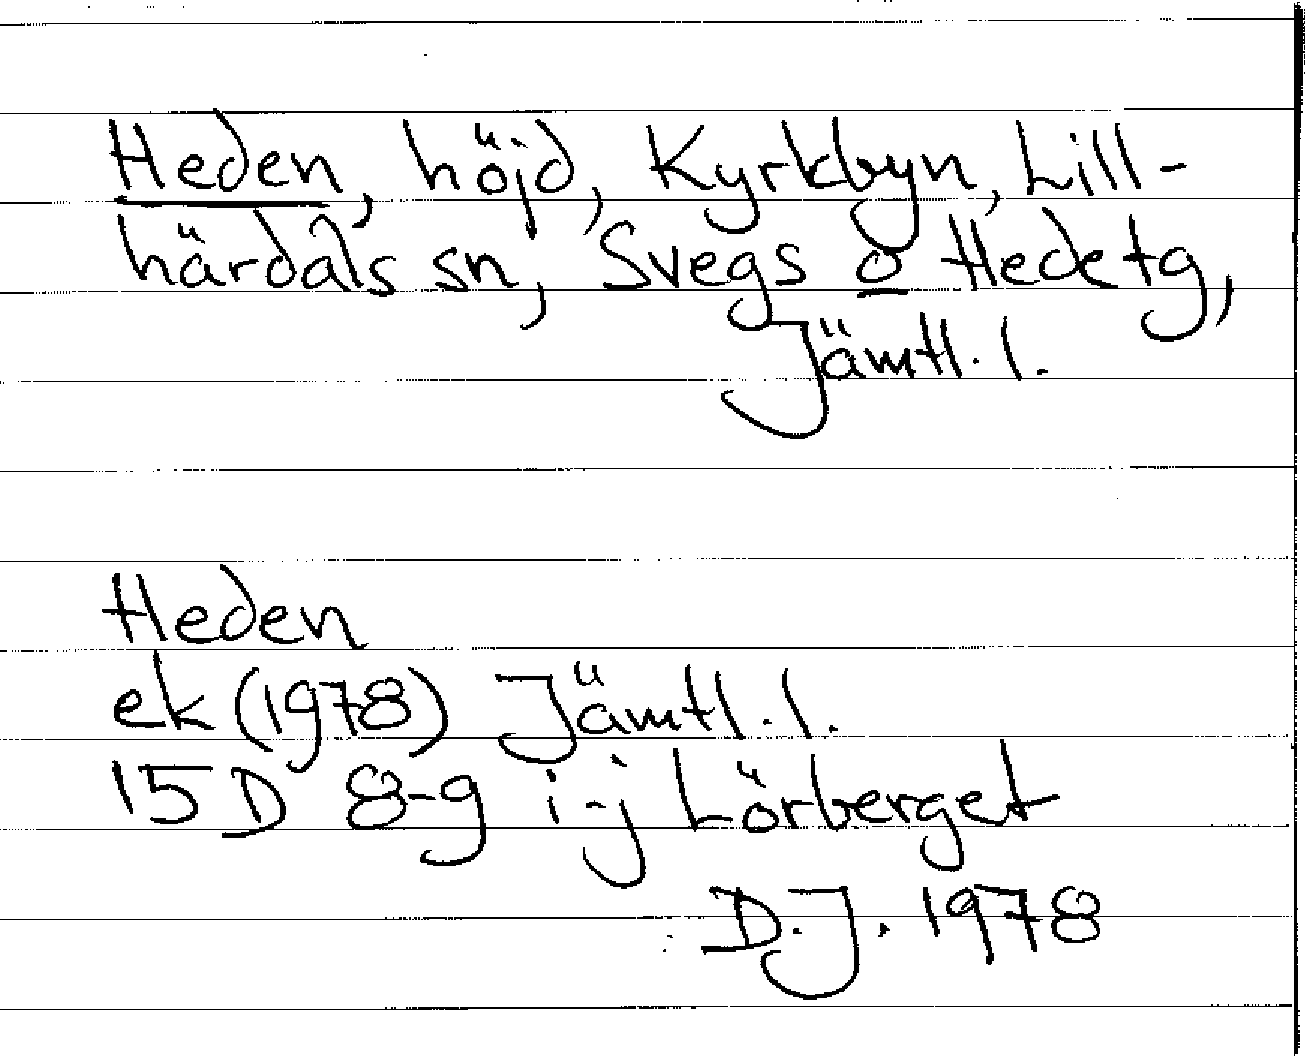 Heden, höjd, Kyrkbyn, Lill-
härdals sn, Svegs o Hede tg,
Jämtl. l.
Heden
ek (1978) Jämtl. l.
15 D 8-9 i-j Lörberget
D.J. 1978